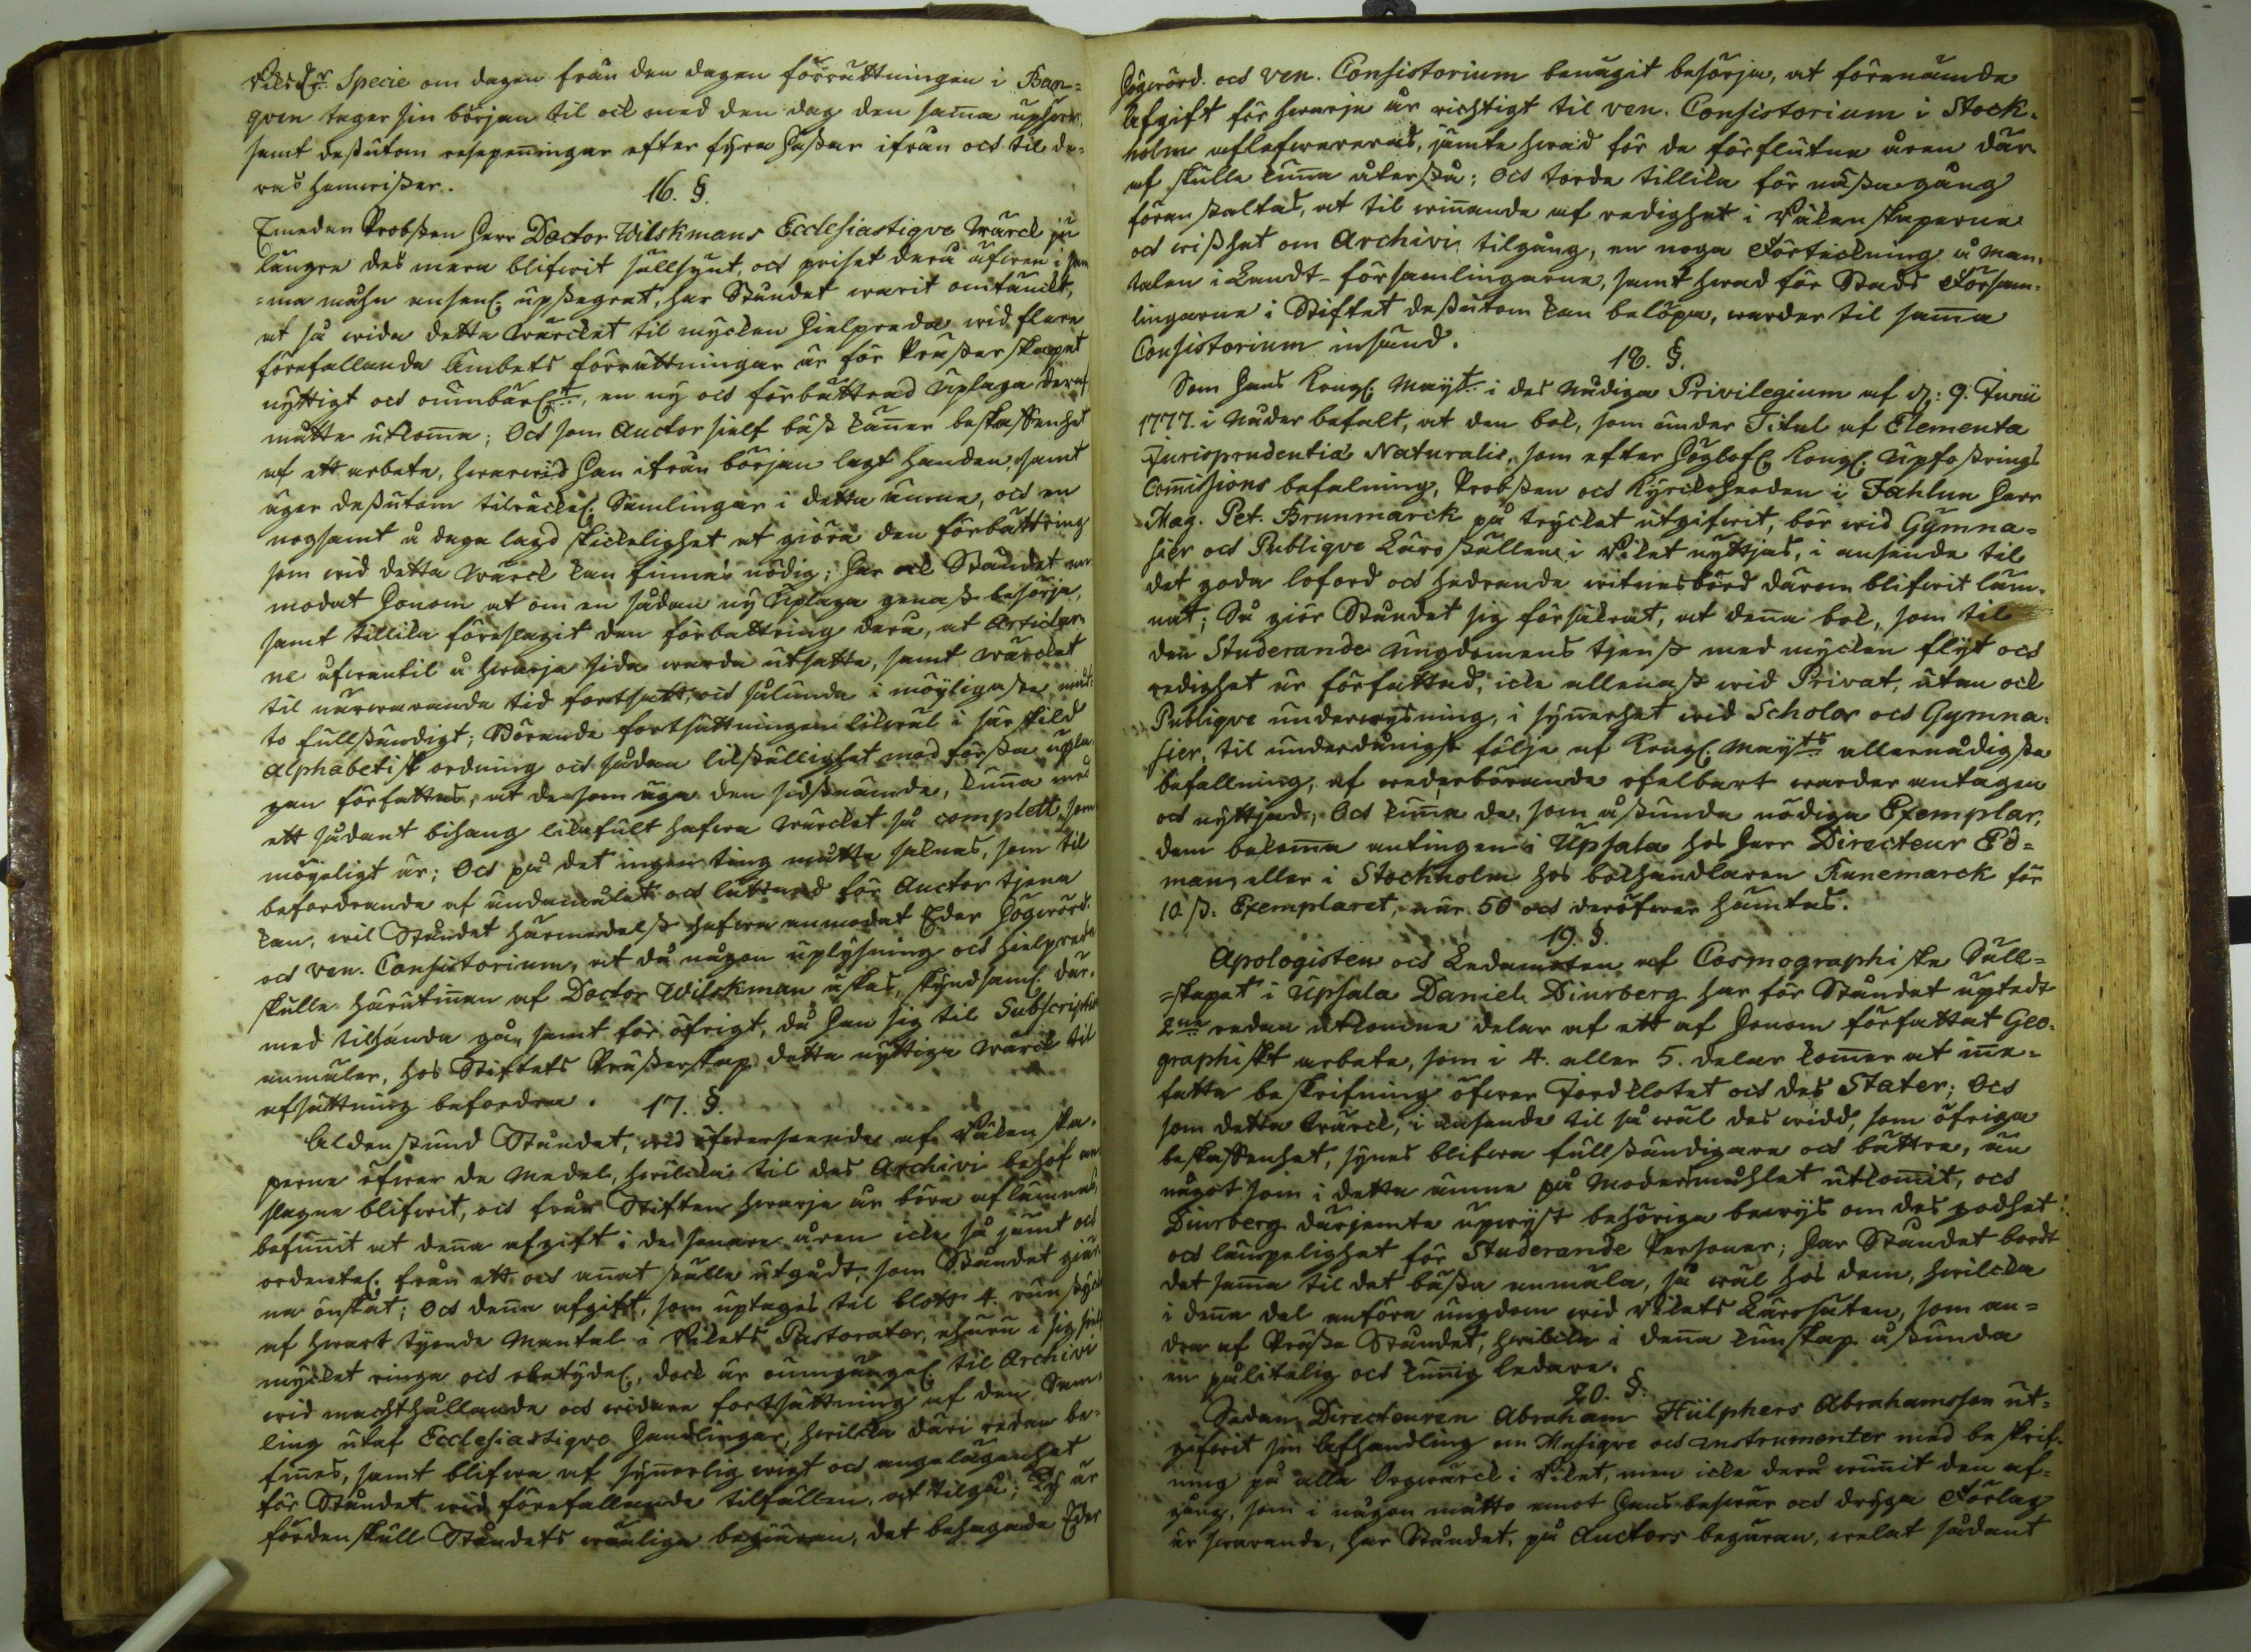 Riksd:r Specie om dagen från den dagen förrättningen i Ban-
quen tager sin början til ock med den dag den samma uphörer,
samt dessutom resepenningar efter fyra Hästar ifrån och til de-
ras hemvister.
16. §.
Emedan Probsten Herr Doctor Wilskmans Ecclesiastique Wärck ju
längre des mera blifwit sällsynt, och priset derå äfwen i sam
=ma måhn ansenl: upstegrat, har Ståndet warit omtänckt,
at så wida detta Wärcket til mycken Hielpreda wid flere
förefallande Ämbets förrättningar är för Prästerskapet
nyttigt och oumbärl:t, en ny och förbättrad Uplaga deraf
måtte utkomma; Och som Auctor sielf bäst känner beskaffenhet
af ett arbete, hwarwid Han ifrån början lagt handen, samt
äger dessutom tilräckel: Samlingar i detta ämne, och en
nogsamt å daga lagd skickelighet at giöra den förbättring
som wid detta Wärck kan finnas nödig; Har ock Ståndet an-
modat Honom at om en sådan ny Uplaga genast besörja,
samt tillika föreslagit den förbättring derå, at Articlar-
ne ofwantil å hwarje sida warda utsatte, samt Wärcket
til närwarande tid fortsatt, och sålunda i möyligaste måt-
to fullständigt; Börande fortsättningen likwäl i särskild
Alphabetisk ordning och sådan likställighet med första upla-
gan författas, at de som äga den sidstnämde, kunna med
ett sådant bihang likafult hafwa Wärcket så complett, som
möyeligt är; Och på det ingen ting måtte saknas, som til
befordrande af ändamålet och lättnad för Auctor tjena
kan, wil Ståndet härmedelst hafwa anmodat Eder Högwörd:
och Ven. Consistorium, at då någon uplysning och hielpreda
skulle härutinnan af Doctor Wilskman äskas, skyndsaml: där-
med tilhanda gå, samt för öfrigt, då Han sig til Subscription
anmäler, hos Stiftets Prästerskap detta nyttiga Wärck til
afsättning befordra.
17. §.
Aldenstund Ståndet, wid öfwerseende af Räkenska-
perne öfwer de Medel, hwilcka til des Archivi behof an-
slagne blifwit, och från Stiften hwarje år böra aflämnas,
befunnit at denna afgift i de senare åren icke så jämt och
ordentel: från ett och annat ställe utgådt, som Ståndet giär-
na önskat; Och denna afgift, som uptages til blott 4. rundstycken
af hwart tyende Mantal i Rikets Pastorater, ehuru i sig sielf
mycket ringa och obetydel:, dock är oumgängel: til Archivi
wid machthållande och widare fortsättning af den Sam-
ling utaf Ecclesiastique Handlingar, hwilcka däri redan be-
finnes, samt blifwa af synnerlig wigt och angelägenhet
för Ståndet wid förefallande tilfällen, at tilgå; Ty är
fördenskull Ståndets wänliga begiäran, det behagade Eder
Högwörd. och Ven. Consistorium benägit besörja, at förenämde
Afgift för hwarje år richtigt til Ven. Consistorium i Stock-
holm aflefwereras, jämte hwad för de förflutne åren där-
af skulle kunna återstå; Och torde tillika för nästa gång
föranstaltas, at til winnande af redighet i Räkenskaperne
och wisshet om Archivi tilgång, en noga Förteckning å Man-
talen i Landt-församlingarne, samt hwad för Stads Försam-
lingarne i Stiftet dessutom kan belöpa, warder til samma
Consistorium insänd.
18. §.
Som Hans Kongl: Maij:t i des Nådiga Privilegium af d: 9. Junii
1777. i Nåder befalt, at den bok, som under Titul af Elementa
Jurisprudentiæ Naturalis, som efter Höglofl: Kongl: Upfostrings
Commissions befalning, Probsten och Kyrckoherden i Fahlun Herr
Mag. Pet. Brunmarck på trycket utgifwit, bör wid Gymna-
sier och Publique Läroställen i Riket nyttjas, i anseende til
det goda loford och hedrande witnesbörd därom blifwit läm-
nat; Så giör Ståndet sig försäkrat, at denna bok, som til
den Studerande Ungdomens tjenst med mycken flyt och
redighet är författad, icke allenast wid Privat, utan ock
Publique underwysning, i synnerhet wid Scholor och Gymna-
sier, til underdånigst följe af Kongl: Maij:ts allernådigste
befallning, af wederbörande ofelbart warder antagen
och nyttjad; Och kunna de, som åstunda nödiga Exemplar,
dem bekomma antingen i Upsala hos Herr Directeur Ed-
man, eller i Stockholm hos bokhandlaren Runemarck för
10 ß: Exemplaret, när 50 och deröfwer hämtas.
19. §.
Apologisten och Ledamoten af Cosmographiske Säll-
=skapet i Upsala Daniel Diurberg har för Ståndet uptedt
2:ne redan utkomne delar af ett af Honom författat Geo-
graphiskt arbete, som i 4. eller 5. delar kommer at inne-
fatta beskrifning öfwer Jordklotet och des Stater; Och
som detta Wärck, i anseende til så wäl des widd, som öfriga
beskaffenhet, synes blifwa fullständigare och bättre, än
något som i detta ämne på Modersmåhlet utkommit, och
Diurberg därjemte upwyst behöriga bewys om des godhet
och lämpelighet för Studerande Personer; Har Ståndet bordt
det samma til det bästa anmäla, så wäl hos dem, hwilcka
i denna del anföra ungdom wid Rikets Lärosäten, som an-
dra af Präste Ståndet, hwilcka i denna kunskap åstunda
en pålitelig och kunnig ledare.
20. §.
Sedan Directeuren Abraham Hülphers Abrahamsson ut-
gifwit sin Afhandling om Musique och Instrumenter med beskrif-
ning på alla Orgwärck i Riket, men icke derå wunnit den af-
gång, som i någon måtto emot Hans beswär och dryga Förlag
är swarande, har Ståndet, på Auctors begäran, welat sådant